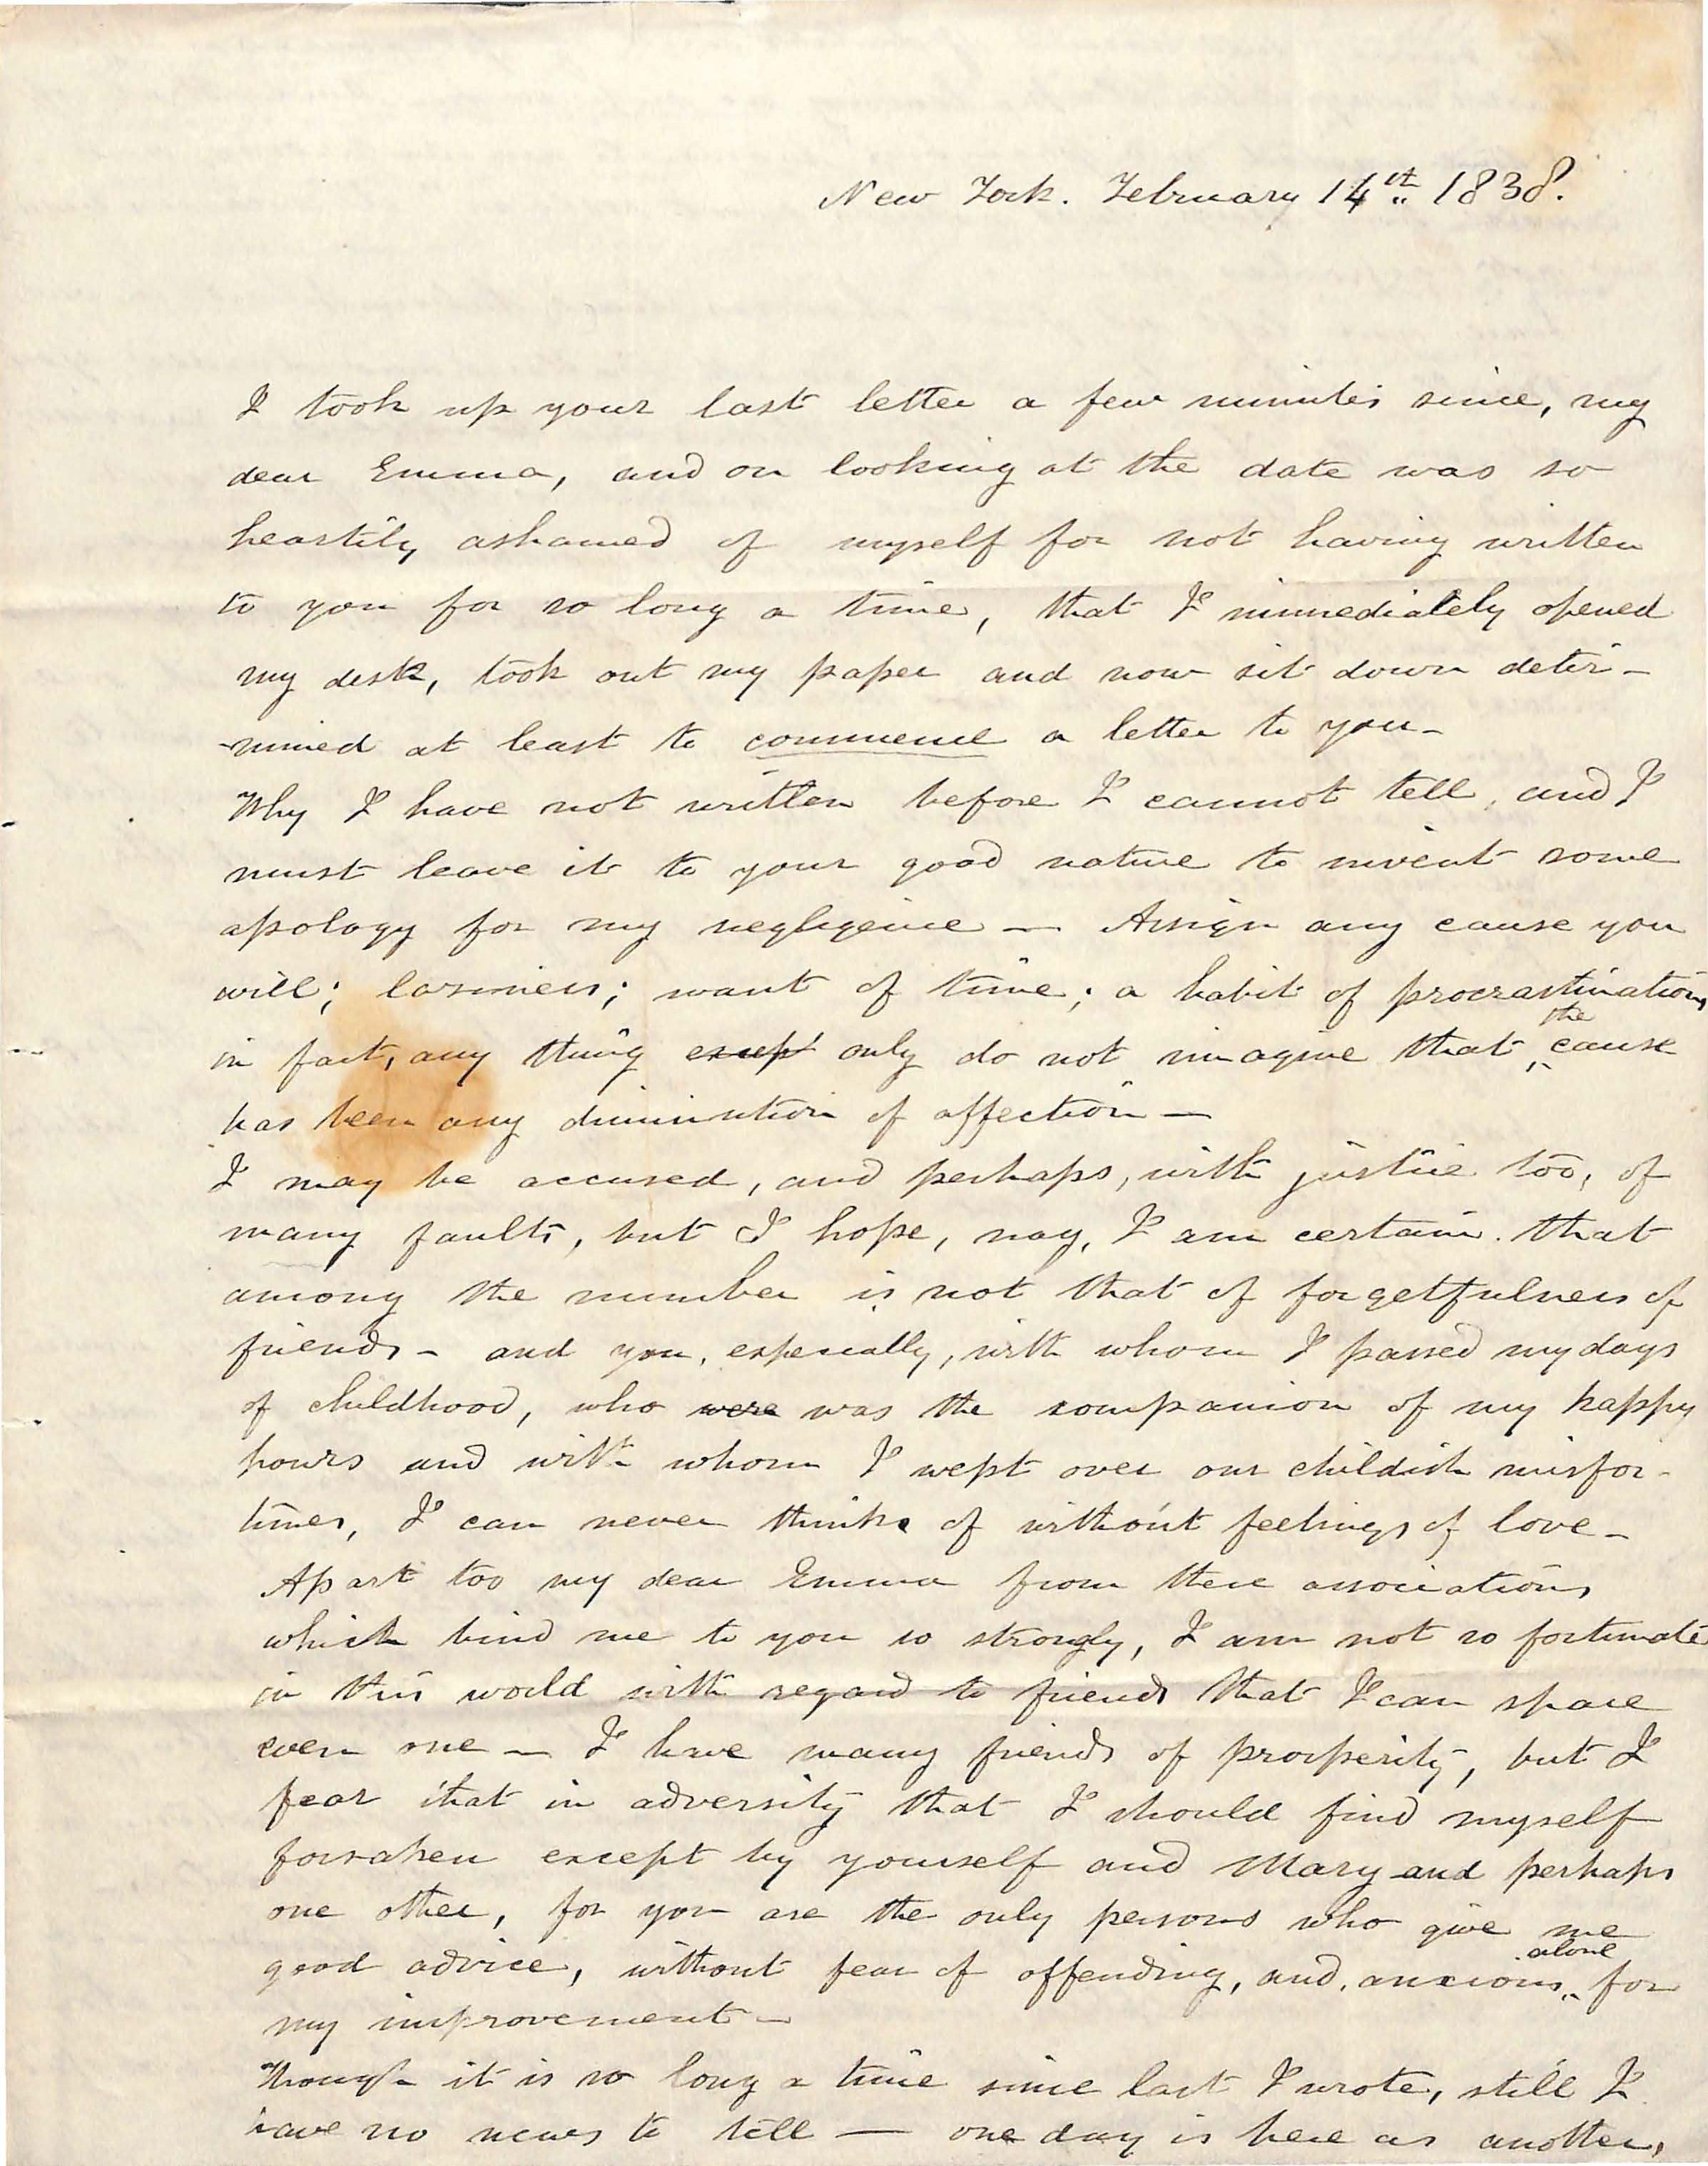 New York. February 14th 1838.
I took up your last letter a few minutes since, my
dear Emma, and on looking at the date was so
heartily ashamed of myself for not having written
to you for so long a time, that I immediately opened
my desk, took out my paper and now sit down deter-
-mined at least to commence a letter to you-
Why I have not written before I cannot tell, and I
must leave it to your good nature to invent some
apology for my negligence — Assign any cause you
will; lasiness; want of time; a habit of procrastination,
in fact, any thing except only do not imagine that the cause
has been any diminution of affection —
I may be accused, and perhaps, with justice too, of
many faults, but I hope, nay, I am certain. that
among the number is not that of forgetfulness of
friends - and you, especially, with whom I passed my days
of childhood, who were was the companion of my happy
hours and with whom I wept over our childish misfor-
tunes, I can never think of without feelings of love -
Apart too my dear Emma from these associations
which bind me to you so strongly, I am not so fortunate
in this world with regard to friends that I can spare
even one — I have many friends of prosperity, but I
fear that in adversity that I should find myself
forsaken except by yourself and Mary and perhaps
one other, for you are the only persons who give me
good advice, without fear of offending, and, anxious alone for
my improvement —
Though it is so long a time since last I wrote, still I
have no news to tell — one day is here as another,